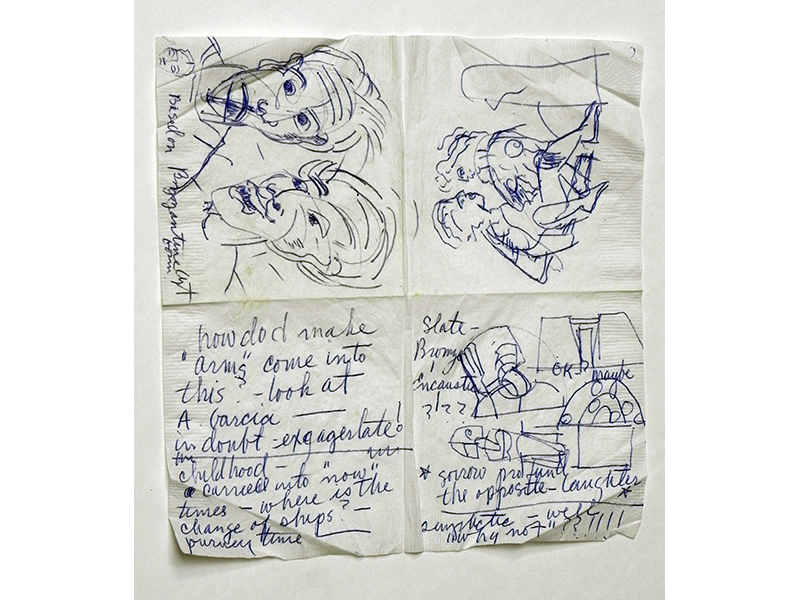 Based on Byzantine Art
how do I make
"arms" come into
this? - look at
A. Garcia
in doubt - exgagerlate!
childhood -
carried into "now"
times - where is the
change of ships? -
time
Slate -
Bronze
Encaustic
?!??
OK - maybe
* sorrow profund
the opposite - laughter *
- well
why not" ??!!!!